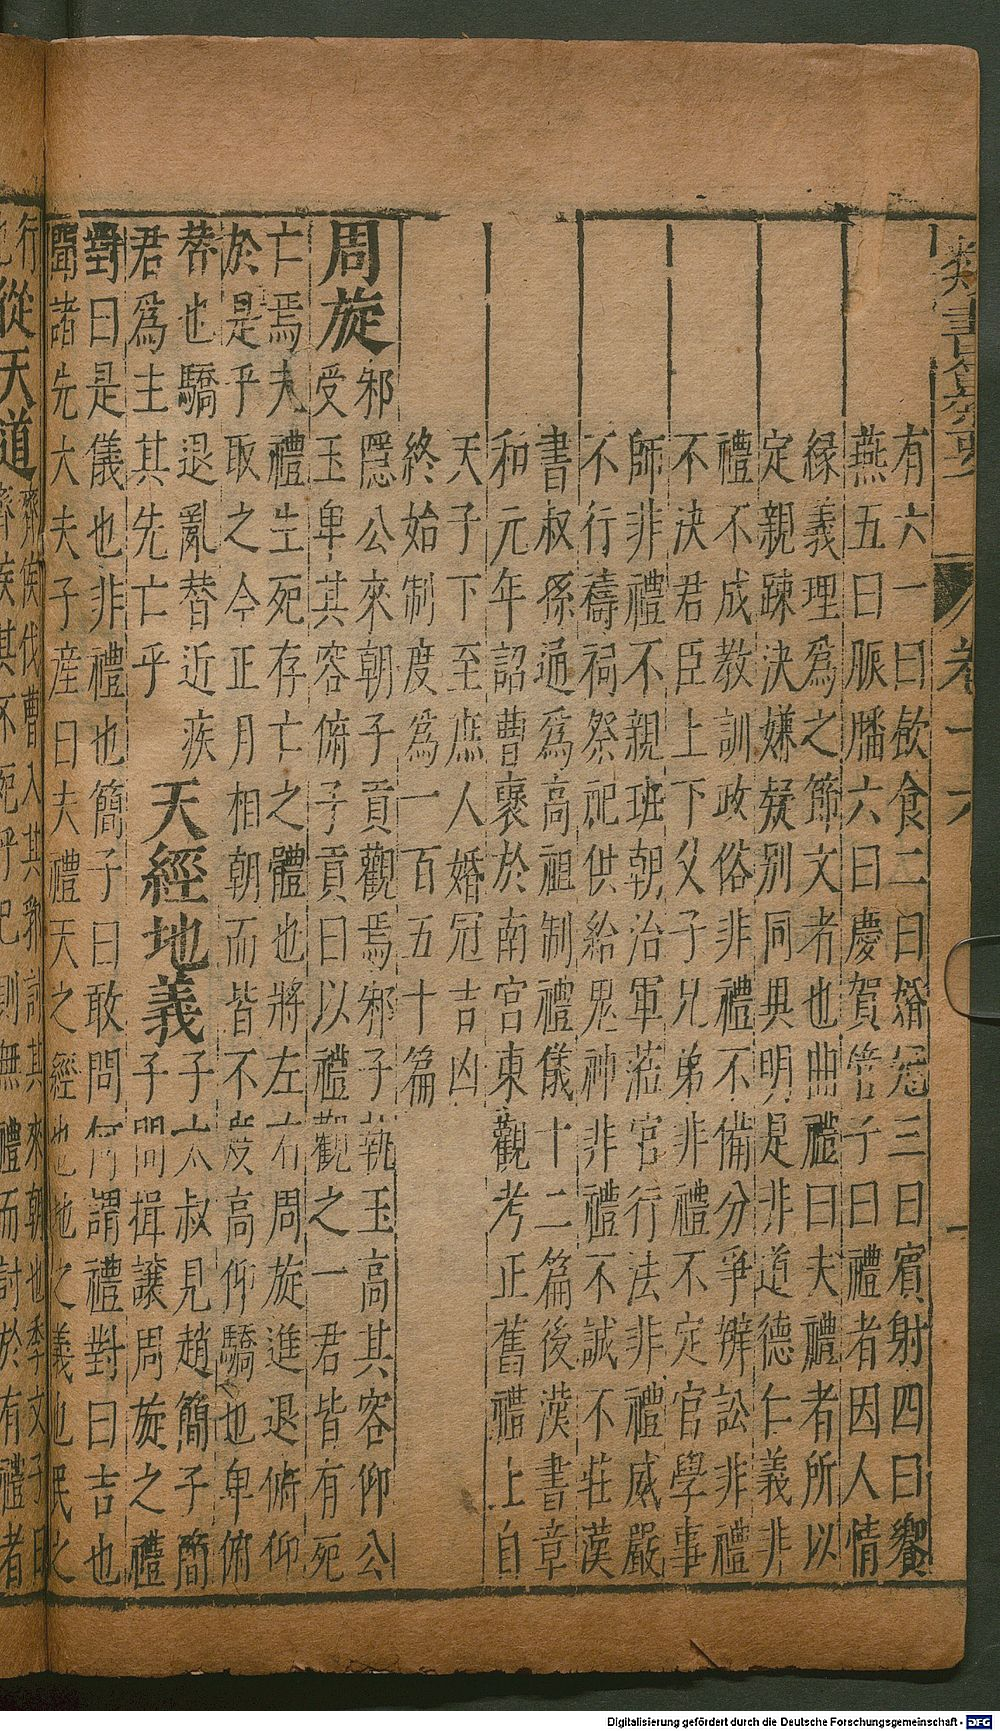 卷十六
一
有六一曰飲食二曰婚冠三曰賓射四曰饗
燕五曰脤膰六曰慶賀管子曰禮者因人情
緣義理爲之節文者也曲禮曰夫禮者所以
定親踈決嫌疑別同異明是非道德仁義非
禮不成教訓政俗非禮不備分爭辨訟非禮
不決君臣上下父子兄弟非禮不定官學事
師非禮不親班朝治軍涖官行法非禮威嚴
不行禱祠祭祀供給鬼神非禮不誠不莊漢
書叔孫通爲高祖制禮儀十二篇後漢書章
和元年詔曹褒於南宮東觀考正舊禮上自
天子下至庶人婚冠吉凶
終始制度爲一百五十篇
周旋
邾隱公來朝子貢觀焉邾子執玉高其容仰公
受玉卑其容俯子貢曰以禮觀之二君皆有死
亡焉夫禮生死存亡之體也將左右周旋進退俯仰
於是乎取之今正月相朝而皆不度高仰驕也卑俯
替也驕退亂替近疾
君爲主其先亡乎
天經地義
子太叔見趙簡子簡
子問揖讓周旋之禮
對曰是儀也非禮也簡子曰敢問何謂禮對曰吉也
聞諸先大夫子產曰夫禮天之經也地之義也民之
行
也
從天道
齊侯伐曹入其郛討其來朝也季文子曰
齊侯其不免乎己則無禮而討於有禮者
Digitalisierung gefördert durch die Deutsche Forschungsgemeinschaft - DFG